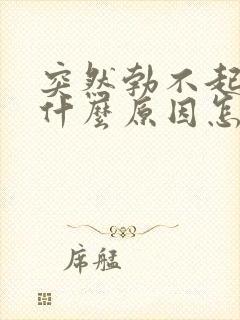 突然勃不起
什麼原因怎
席艋